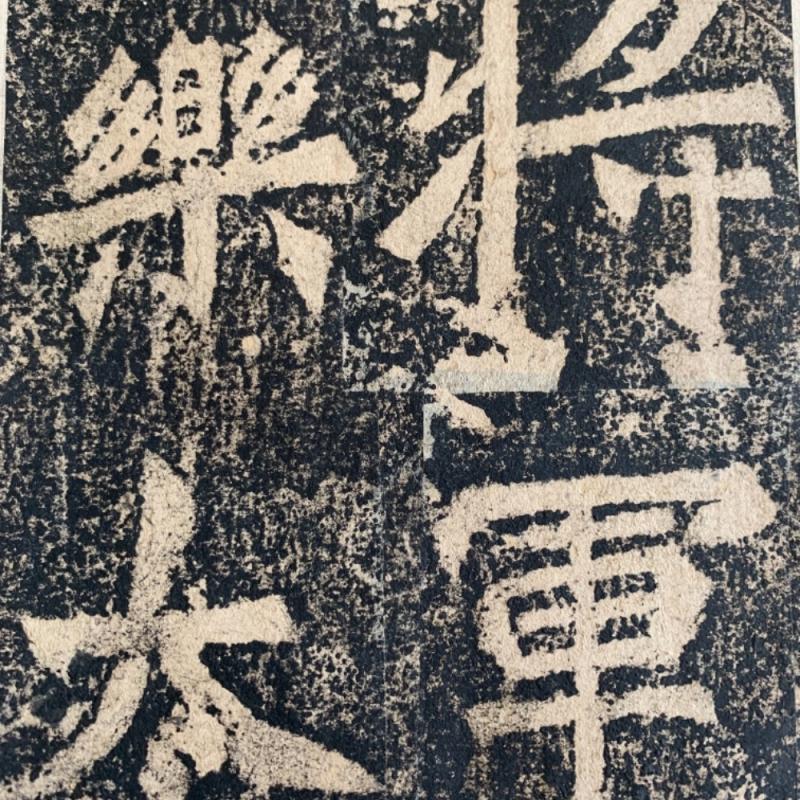 將軍
樂太